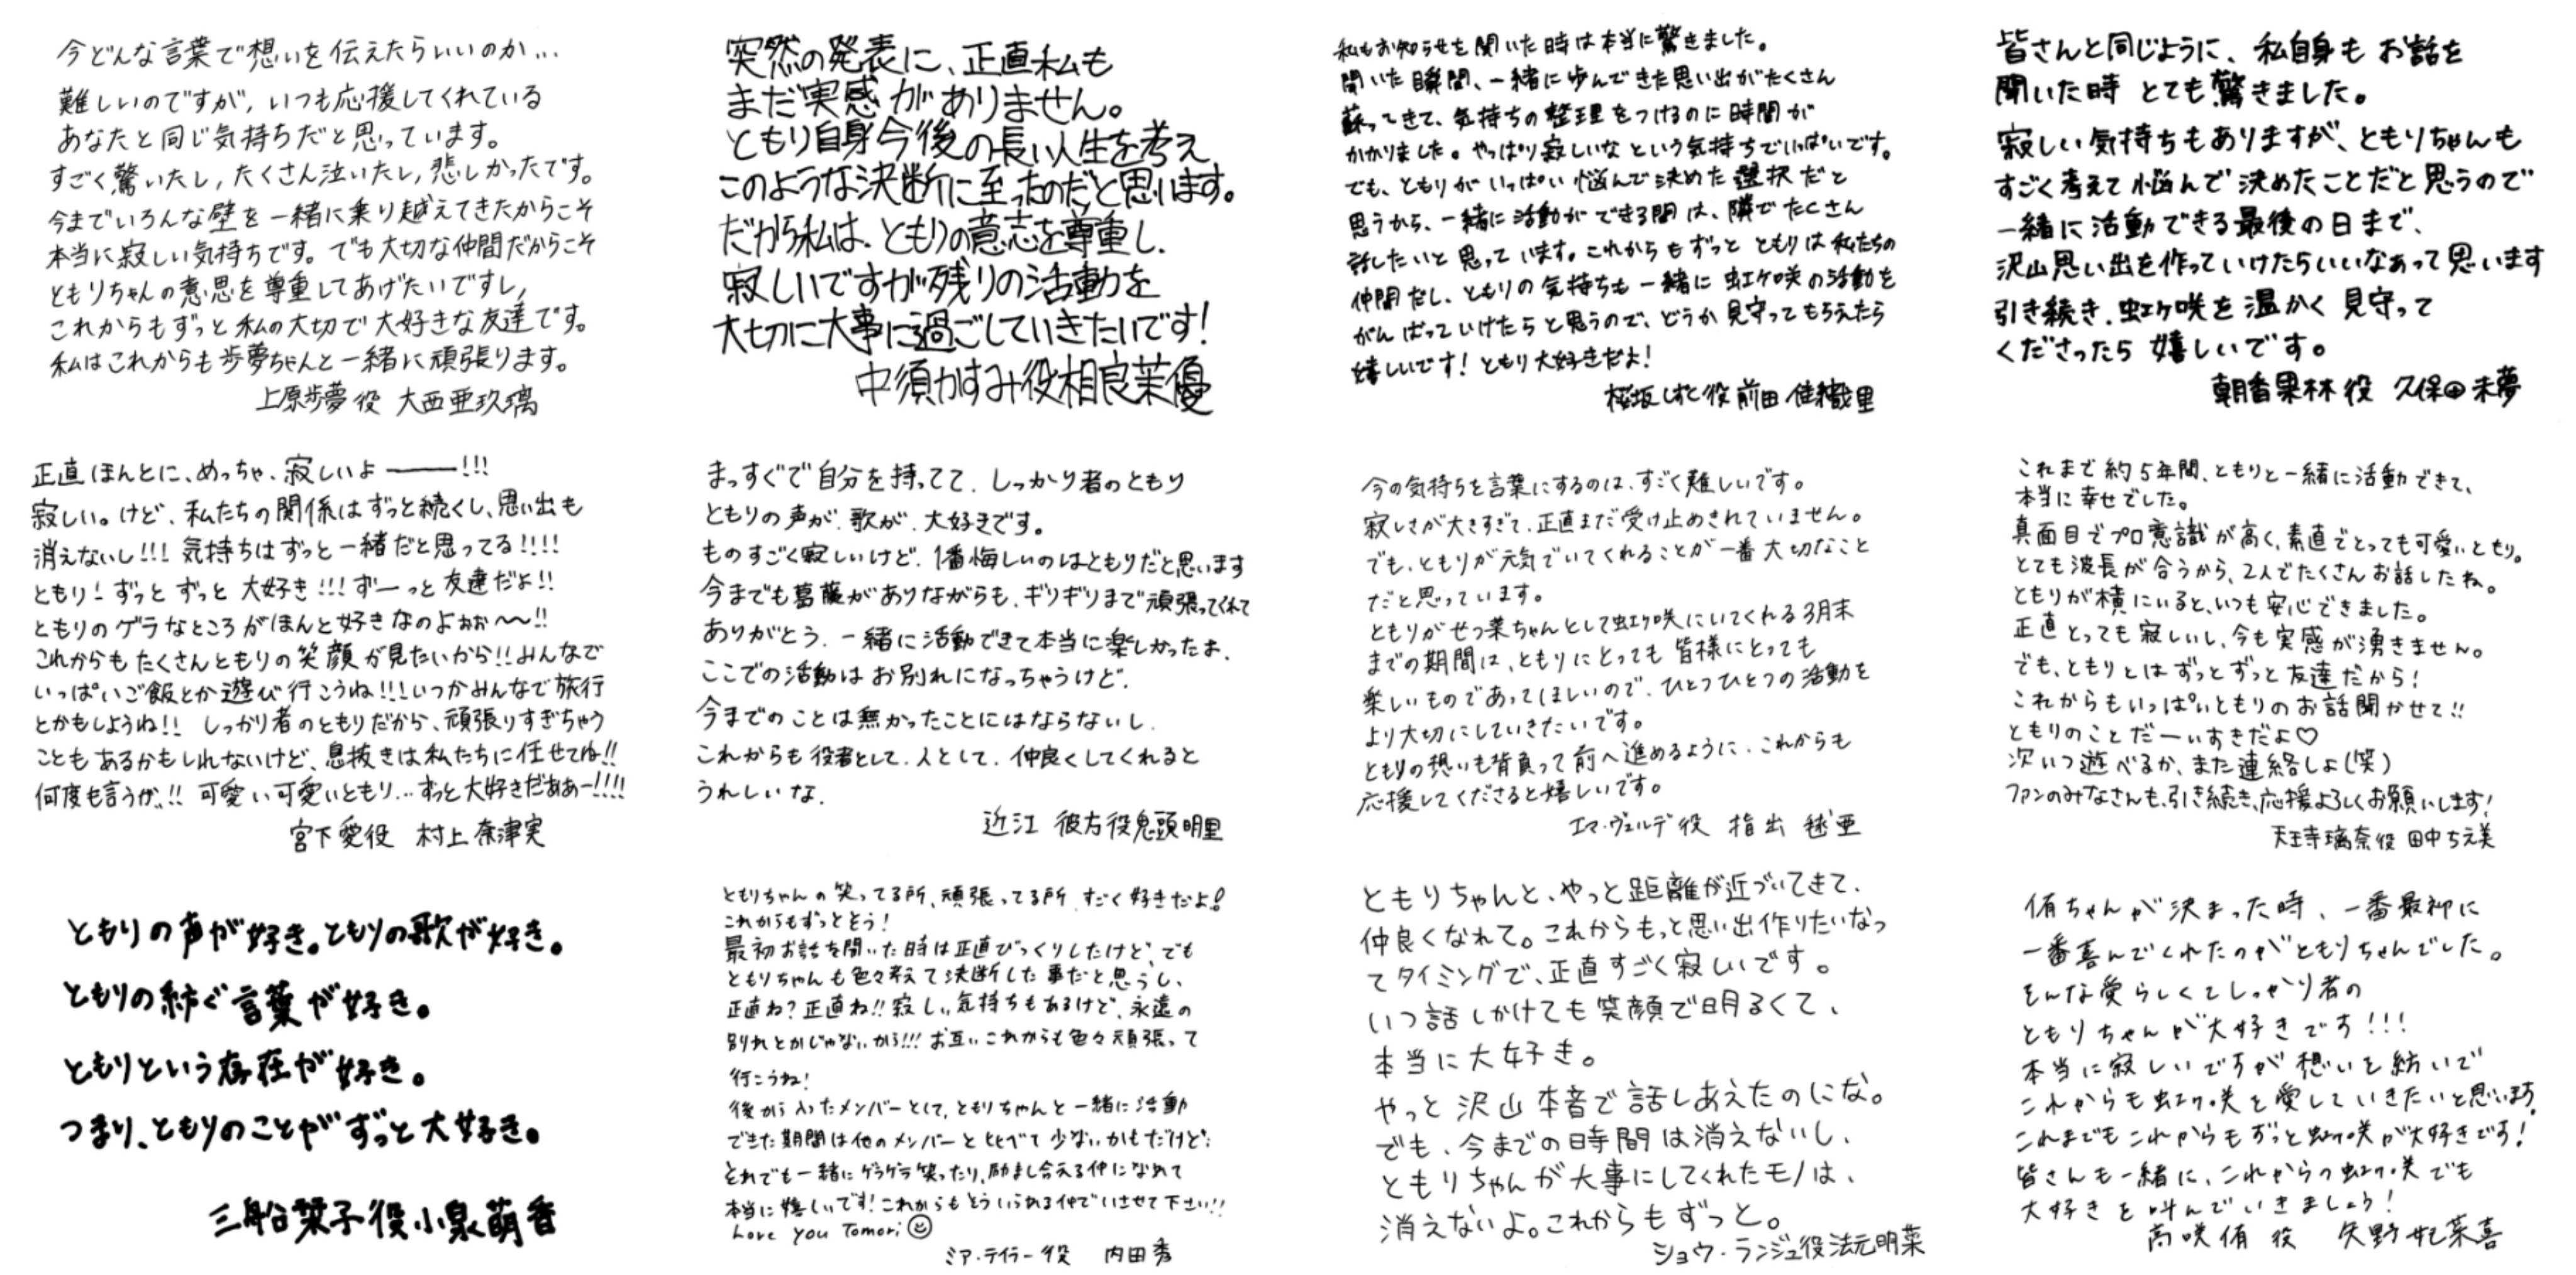 今どんな言葉で想いを伝えたらいいのか...
難しいのですが, いつも応援してくれている
あなたと同じ気持ちだと思っています。
すごく驚いたし, たくさん泣いたし, 悲しかったです。
今までいろんな壁を一緒に乗り越えてきたからこそ
本当に寂しい気持ちです。でも大切な仲間だからこそ
ともりちゃんの意思を尊重してあげたいですし,
これからもずっと私の大切で大好きな友達です。
私はこれからも歩夢ちゃんと一緒に頑張ります。
上原歩夢役 大西亜玖璃
突然の発表に、正直私も
まだ実感がありません。
ともり自身今後の長い人生を考え
このような決断に至ったのだと思います。
だから私は、ともりの意志を尊重し、
寂しいですが残りの活動を
大切に大事に過ごしていきたいです!
中須かすみ役相良茉優
私もお知らせを聞いた時は本当に驚きました。
聞いた瞬間、一緒に歩んできた思い出がたくさん
蘇ってきて、気持ちの整理をつけるのに時間が
かかりました。やっぱり寂しいなという気持ちでいっぱいです。
でも、ともりがいっぱい悩んで決めた選択だと
思うから、一緒に活動ができる間は、隣でたくさん
話したいと思っています。これからもずっとともりは私たちの
仲間だし、ともりの気持ちも一緒に虹ヶ咲の活動を
がんばっていけたらと思うので、どうか見守ってもらえたら
嬉しいです! ともり大好きだよ!
桜坂しずく役 前田佳織里
皆さんと同じように、私自身もお話を
聞いた時とても驚きました。
寂しい気持ちもありますが、ともりちゃんも
すごく考えて悩んで決めたことだと思うので
一緒に活動できる最後の日まで、
沢山思い出を作っていけたらいいなぁって思います
引き続き、虹ヶ咲を温かく見守って
くださったら嬉しいです。
朝香果林役 久保田未夢
正直ほんとに、めっちゃ、寂しいよ―――!!!
寂しい。けど、私たちの関係はずっと続くし、思い出も
消えないし!!! 気持ちはずっと一緒だと思ってる!!!!
ともり! ずっとずっと大好き!!! ずーっと友達だよ!!
ともりのゲラなところがほんと好きなのよぉぉ〜〜!!
これからもたくさんともりの笑顔が見たいから!! みんなで
いっぱいご飯とか遊び行こうね!!! いつかみんなで旅行
とかもしようね!! しっかり者のともりだから、頑張りすぎちゃう
こともあるかもしれないけど、息抜きは私たちに任せてね!!
何度も言うが、!! 可愛い可愛いともり...ずっと大好きだぁぁー!!!!
宮下愛役 村上奈津実
まっすぐで自分を持ってて、しっかり者のともり
ともりの声が、歌が、大好きです。
ものすごく寂しいけど、1番悔しいのはともりだと思います
今までも葛藤がありながらも、ギリギリまで頑張ってくれて
ありがとう、一緒に活動できて本当に楽しかったよ、
ここでの活動はお別れになっちゃうけど、
今までのことは無かったことにはならないし、
これからも役者として、人として、仲良くしてくれると
うれしいな、
近江彼方役鬼頭明里
今の気持ちを言葉にするのは、すごく難しいです。
寂しさが大きすぎて、正直まだ受け止めきれていません。
でも、ともりが元気でいてくれることが一番大切なこと
だと思っています。
ともりがせつ菜ちゃんとして虹ヶ咲にいてくれる3月末
までの期間は、ともりにとっても皆様にとっても
楽しいものであってほしいので、ひとつひとつの活動を
より大切にしていきたいです。
ともりの想いも背負って前へ進めるように、これからも
応援してくださると嬉しいです。
エマ・ヴェルデ役 指出毬亜
これまで約5年間、ともりと一緒に活動できて、
本当に幸せでした。
真面目でプロ意識が高く、素直でとっても可愛いともり。
とても波長が合うから、2人でたくさんお話したね。
ともりが横にいると、いつも安心できました。
正直とっても寂しいし、今も実感が湧きません。
でも、ともりとはずっとずっと友達だから!
これからもいっぱいともりのお話聞かせて!!
ともりのことだーいすきだよ♡
次いつ遊べるか、また連絡しよ(笑)
ファンのみなさんも、引き続き、応援よろしくお願いします!
天王寺璃奈役 田中ちえ美
ともりの声が好き。ともりの歌が好き。
ともりの紡ぐ言葉が好き。
ともりという存在が好き。
つまり、ともりのことがずっと大好き。
三船栞子役小泉萌香
ともりちゃんの笑ってる所、頑張ってる所、すごく好きだよ!
これからもずっとそう!
最初お話を聞いた時は正直びっくりしたけど、でも
ともりちゃんも色々考えて決断した事だと思うし、
正直ね? 正直ね!! 寂しい気持ちもあるけど、永遠の
別れとかじゃないから!!! お互いこれからも色々頑張って
行こうね!
後から入ったメンバーとして、ともりちゃんと一緒に活動
できた期間は他のメンバーと比べて少ないかもだけど、
それでも一緒にゲラゲラ笑ったり、励まし合える仲になれて
本当に嬉しいです! これからもそういられる仲でいさせて下さい!!
Love you Tomori ☺
ミア・テイラー役 内田秀
ともりちゃんと、やっと距離が近づいてきて、
仲良くなれて。これからもっと思い出作りたいなっ
てタイミングで、正直すごく寂しいです。
いつ話しかけても笑顔で明るくて、
本当に大好き。
やっと沢山本音で話しあえたのにな。
でも、今までの時間は消えないし、
ともりちゃんが大事にしてくれたモノは、
消えないよ。これからもずっと。
ショウ・ランジュ役法元明菜
侑ちゃんが決まった時、一番最初に
一番喜んでくれたのがともりちゃんでした。
そんな愛らしくてしっかり者の
ともりちゃんが大好きです!!!
本当に寂しいですが想いを紡いで
これからも虹ヶ咲を愛していきたいと思います。
これまでもこれからもずっと虹ヶ咲が大好きです!
皆さんも一緒に、これからの虹ヶ咲でも
大好きを叫んでいきましょう!
高咲侑役 矢野妃菜喜